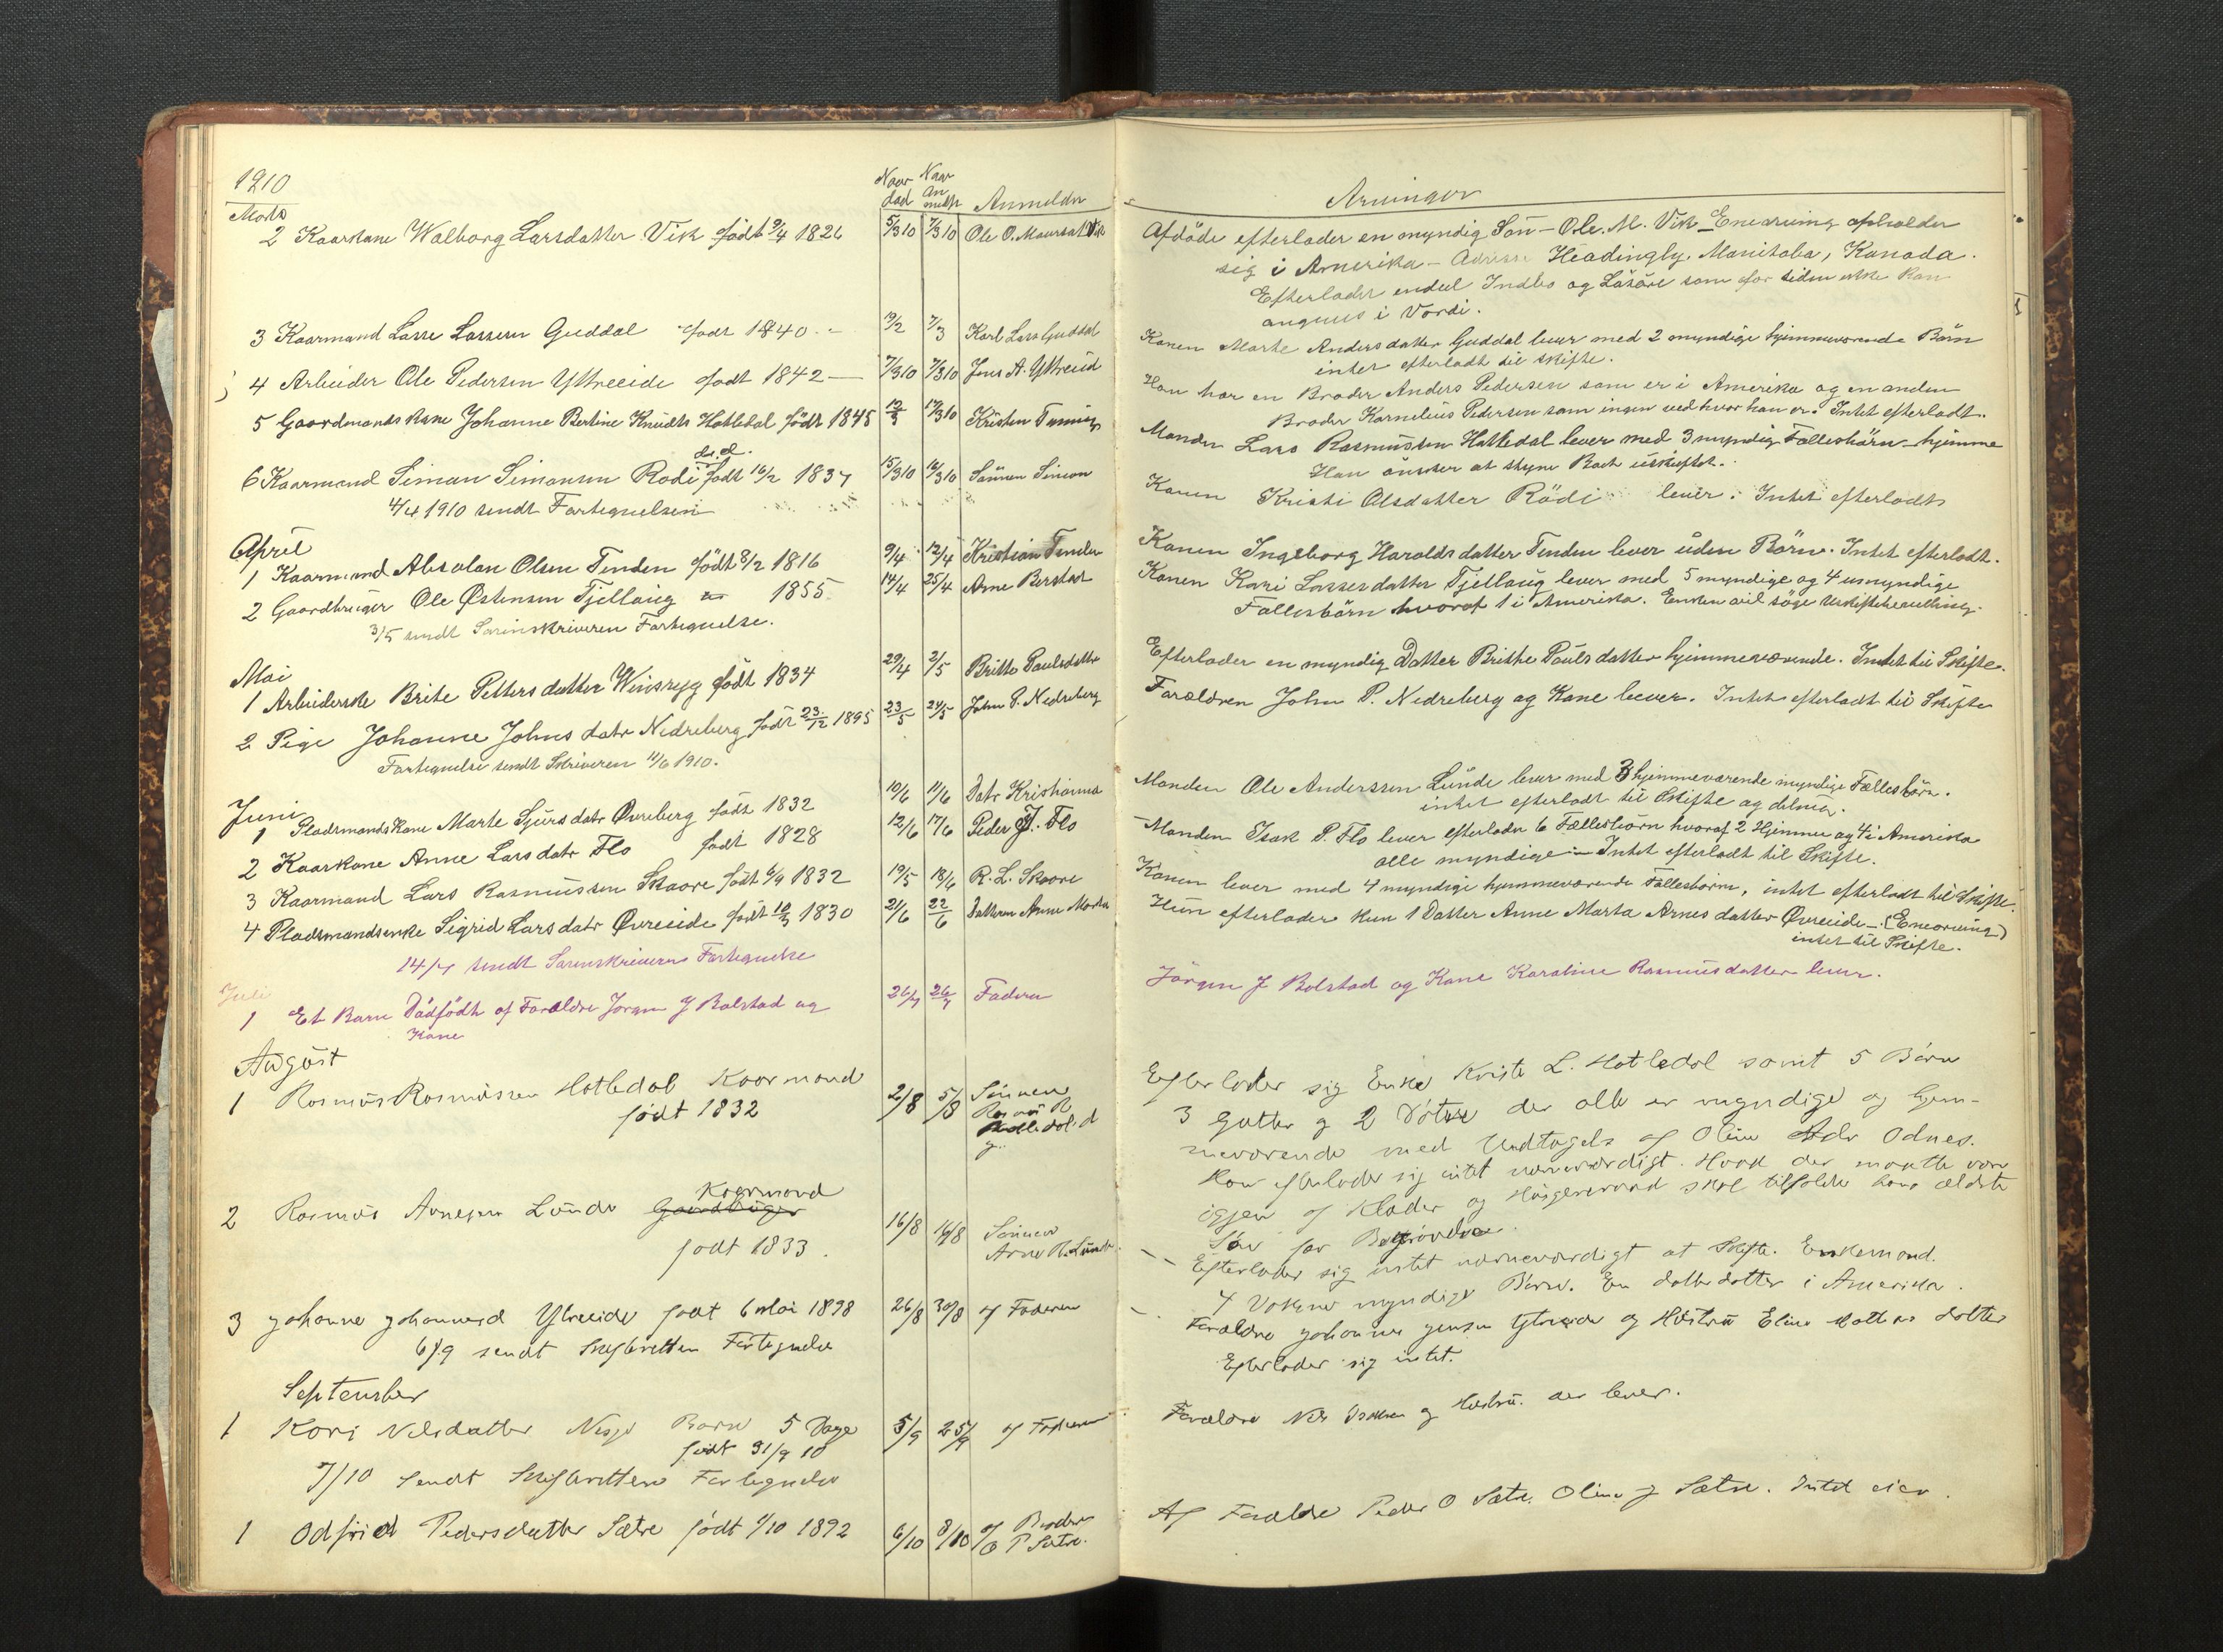 1910
Naar død
Naar anmeldt
Anmelder
Arvinger
Marts
2 Kaarkone Walborg Larsdatter Vik født 9/4 1826 5/3 10 7/3 10 Ole O. Maursad Vik
Afdöde efterlader en myndig Sön - Ole M. Vik - Enearving opholder
sig i Amerika - Adresse Headingly, Manitoba, Kanada.
Efterlader endeel Indbo og Lösöre som for tiden ikke kan
angives i Værdi.
3 Kaarmand Lasse Lassesen Guddal født 1840 19/2 7/3 Karl Lass Guddal
Konen Marte Andersdatter Guddal lever med 2 myndige hjemmeværende Börn
intet efterladt til skifte.
4 Arbeider Ole Pedersen Yttreeide født 1842 - 7/3 10 7/3 10 Jens A. Yttreeid
Han har en Broder Anders Pedersen som er i Amerika og en anden
Broder Kornelius Pedersen som ingen ved hvor han er. Intet efterladt.
5 Gaardmandskone Johanne Bertine Knudts Hatledal født 1845 12/3 17/3 10 Kristen
Manden Lars Rasmussen Hatledal lever med 3 myndig Fællesbörn hjemme
Han önsker at Boet uskiftet.
6 Kaarmand Simon Simonsen Rödi født 16/2 1837 15/3 10 16/3 10 Sönnen Simon
4/4 1910 sendt Fortegnelsen
Konen Kristi Olsdatter Rödi lever. Intet efterladt
April
1 Kaarmand Absalon Olsen Tenden födt 8/2 1816 9/4 12/4 Kristian Tenden
Konen Ingeborg Haraldsdatter Tenden lever uden Börn. Intet efterladt.
2 Gaardbruger Ole Østensen Tjellaug 1855 14/4 25/4 Arne Berstad
3/5 sendt Sorinskriveren Fortegnelse.
Konen Kari Lassesdatter Tjellaug lever med 5 myndige og 4 umyndige
Fællesbörn hvoraf 1 i Amerika. Enken vil söge Uskiftebevilling.
Mai
1 Arbeiderske Brite Pettersdatter Winsryg födt 1834 29/4 2/5 Britte Paulsdatter
Efterlader en myndig Datter Brithe Paulsdatter hjemmeværende. Intet til Skifte.
2 Pige Johanne Johnsdatr Nedreberg födt 23/12 1895 23/5 24/5 John P. Nedreberg
Fortegnelse sendt Skriveren 11/6 1910.
Forældren John P. Nedreberg og Kone lever. Intet efterladt til Skifte
Juni
1 Pladsmandskone Marte Sjursdatr Øvreberg födt 1832 10/6 11/6 Datr Kristianna
Manden Ole Anderssen Lunde lever med 3 hjemmeværende myndige Fællesbörn.
intet efterladt til Skifte og deling.
2 Kaarkone Anne Larsdatr Flo födt 1828 12/6 17/6 Peder J. Flo
Manden Isak P. Flo lever efterlader 6 Fællesbörn hvoraf 2 Hjemme og 4 i Amerika
alle myndige - Intet efterladt til Skifte.
3 Kaarmand Lars Rasmussen Skaare födt 6/9 1832 19/5 18/6 R. L. Skaare
Konen lever med 4 myndige hjemmeværende Fællesbörn, intet efterladt til Skifte.
4 Pladsmandsenke Sigrid Larsdatr Øvreeide födt 10/3 1830 21/6 22/6 Datteren Anne Marta
14/7 sendt Sorenskriveren Fortegnelse
Hun efterlader kun 1 Datter Anne Marta Arnesdatter Øvreeide - (Enearving)
intet til Skifte.
Juli
1 Et Barn Dödfödt af Forældre Jörgen J Bolstad og
Kone 26/7 26/7 Faderen
Jörgen J Bolstad og Kone Karoline Rasmusdatter lever.
August
1 Rasmus Rasmussen Hatledal Kaarmand
födt 1832 2/8 5/8 Sönnen
Efterlader sig Enke Kristi L. Hatledal samt 5 Börn
3 Gutter og 2 Döttre der alle er myndige og hjem-
meværende med Undtagelse af Oline Odnes.
Han efterlader sig intet nævneværdigt. Hvad der maatte være
igjen af Klæder og skal tilfalde hans ældste
Sön for Begravelse.
2 Rasmus Arnesen Lunde Gaardbruger Kaarmand
födt 1833. 16/8 16/8 Sönnen
Arne R. Lunde.
Efterlader sig intet nævneværdigt at Skifte. Enkemand.
4 Voksne myndige Börn. En datterdatter i Amerika.
3 Johanne Johannesd Ytreeide født 6 Mai 1898 26/8 30/8 af Faderen
6/9 sendt Skifteretten Fortegnelse
Forældre Johannes Jensen Ytreeide og Hustru Eline datter
Efterlader sig intet.
September
1 Kari Nilsdatter Nesje Barn 5 Dage
födt 31/9 10 5/9 25/9 af Faderen
7/10 sendt Skifteretten Fortegnelse
Forældre Nils og Hustru der lever.
1 Odfrid Pedersdatter Sætre födt 1/10 1892 6/10 8/10 af Broder
O P Sætre.
Af Forældre Peder O Sætre, Oline J Sætre. Intet eier.